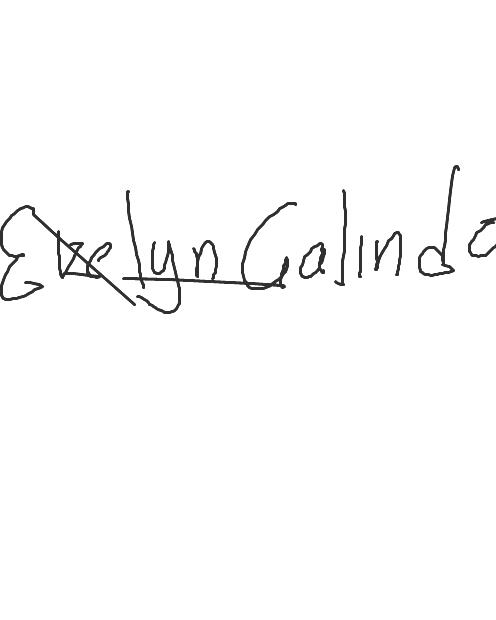 Evelyn Galindo